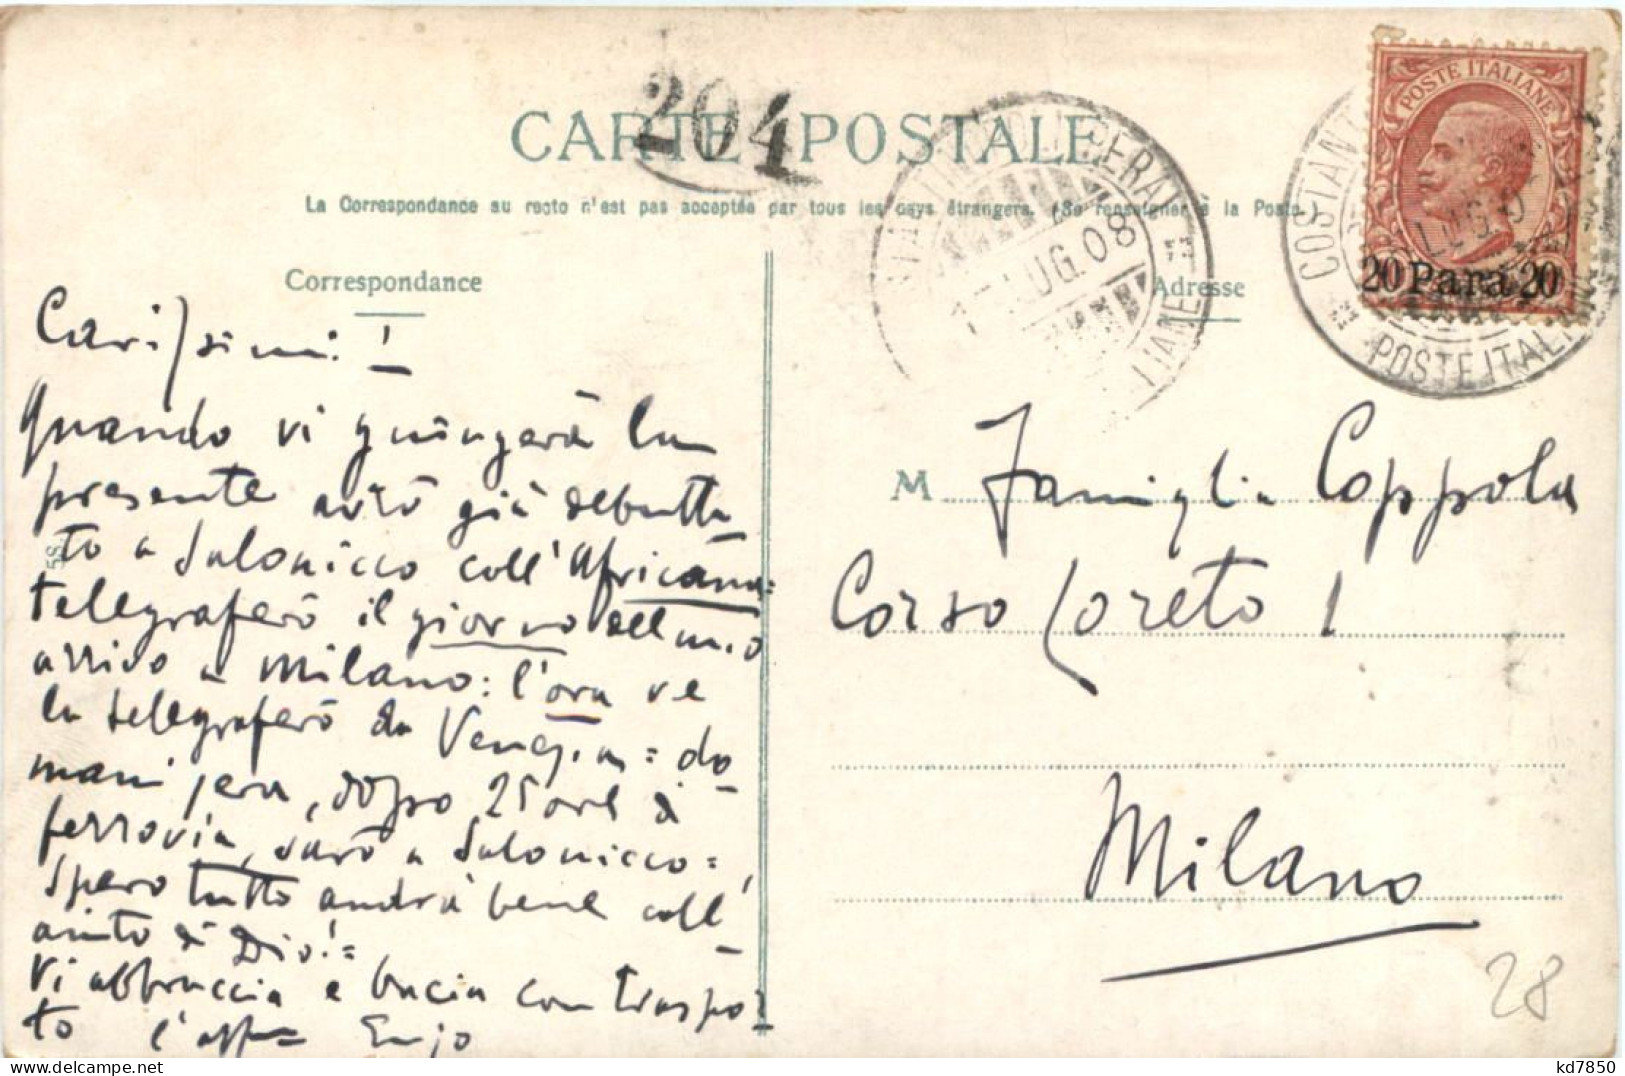 204
CARTE POSTALE
La Correspondance au recto n'est pas acceptée par tous les pays étrangers. (Se renseigner à la Poste.)
Correspondance
Adresse
POSTE ITALIANE
20 Para 20
COSTANT
POSTE ITALI
LUG. 08
Carissimi!
Quando vi giungerà la
presente avrò già debutta-
to a Salonicco coll'Africana=
telegraferò il giorno dell mio
arrivo a Milano: l'ora ve
la telegraferò da Venezia = do-
mani sera, dopo 25 ore di
ferrovia, sarò a Salonicco=
Spero tutto andrà bene coll'
aiuto di Dio!=
Vi abbraccia e bacia con traspor
to l'aff Enzo
5S
M Famiglia Coppola
Corso Loreto 1
Milano
28
kd7850